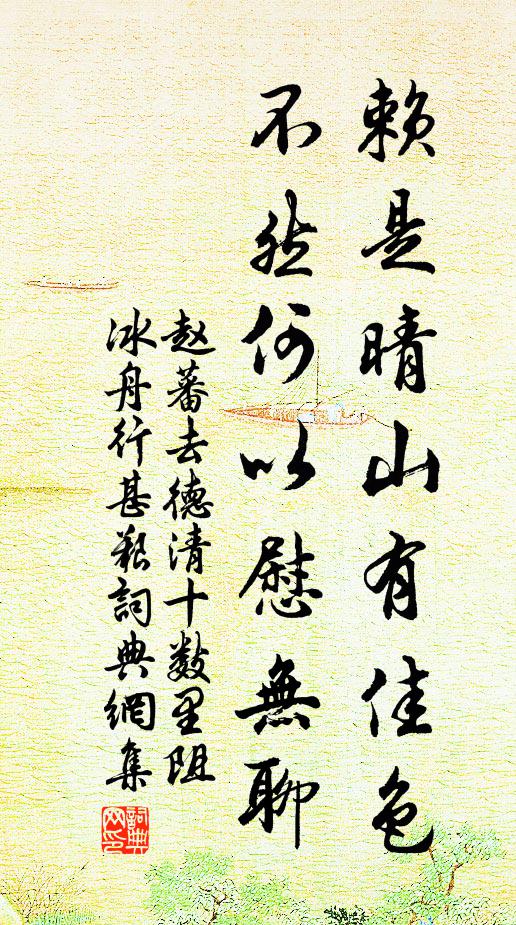 賴是晴山有佳色
不然何以慰無聊
赵蕃去德清十数里阻
冰舟行甚艰詞典網集
詞典
网印